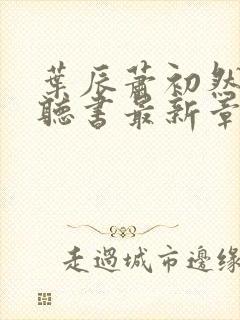 葉辰蕭初然
聽書最新章
走過城市邊緣